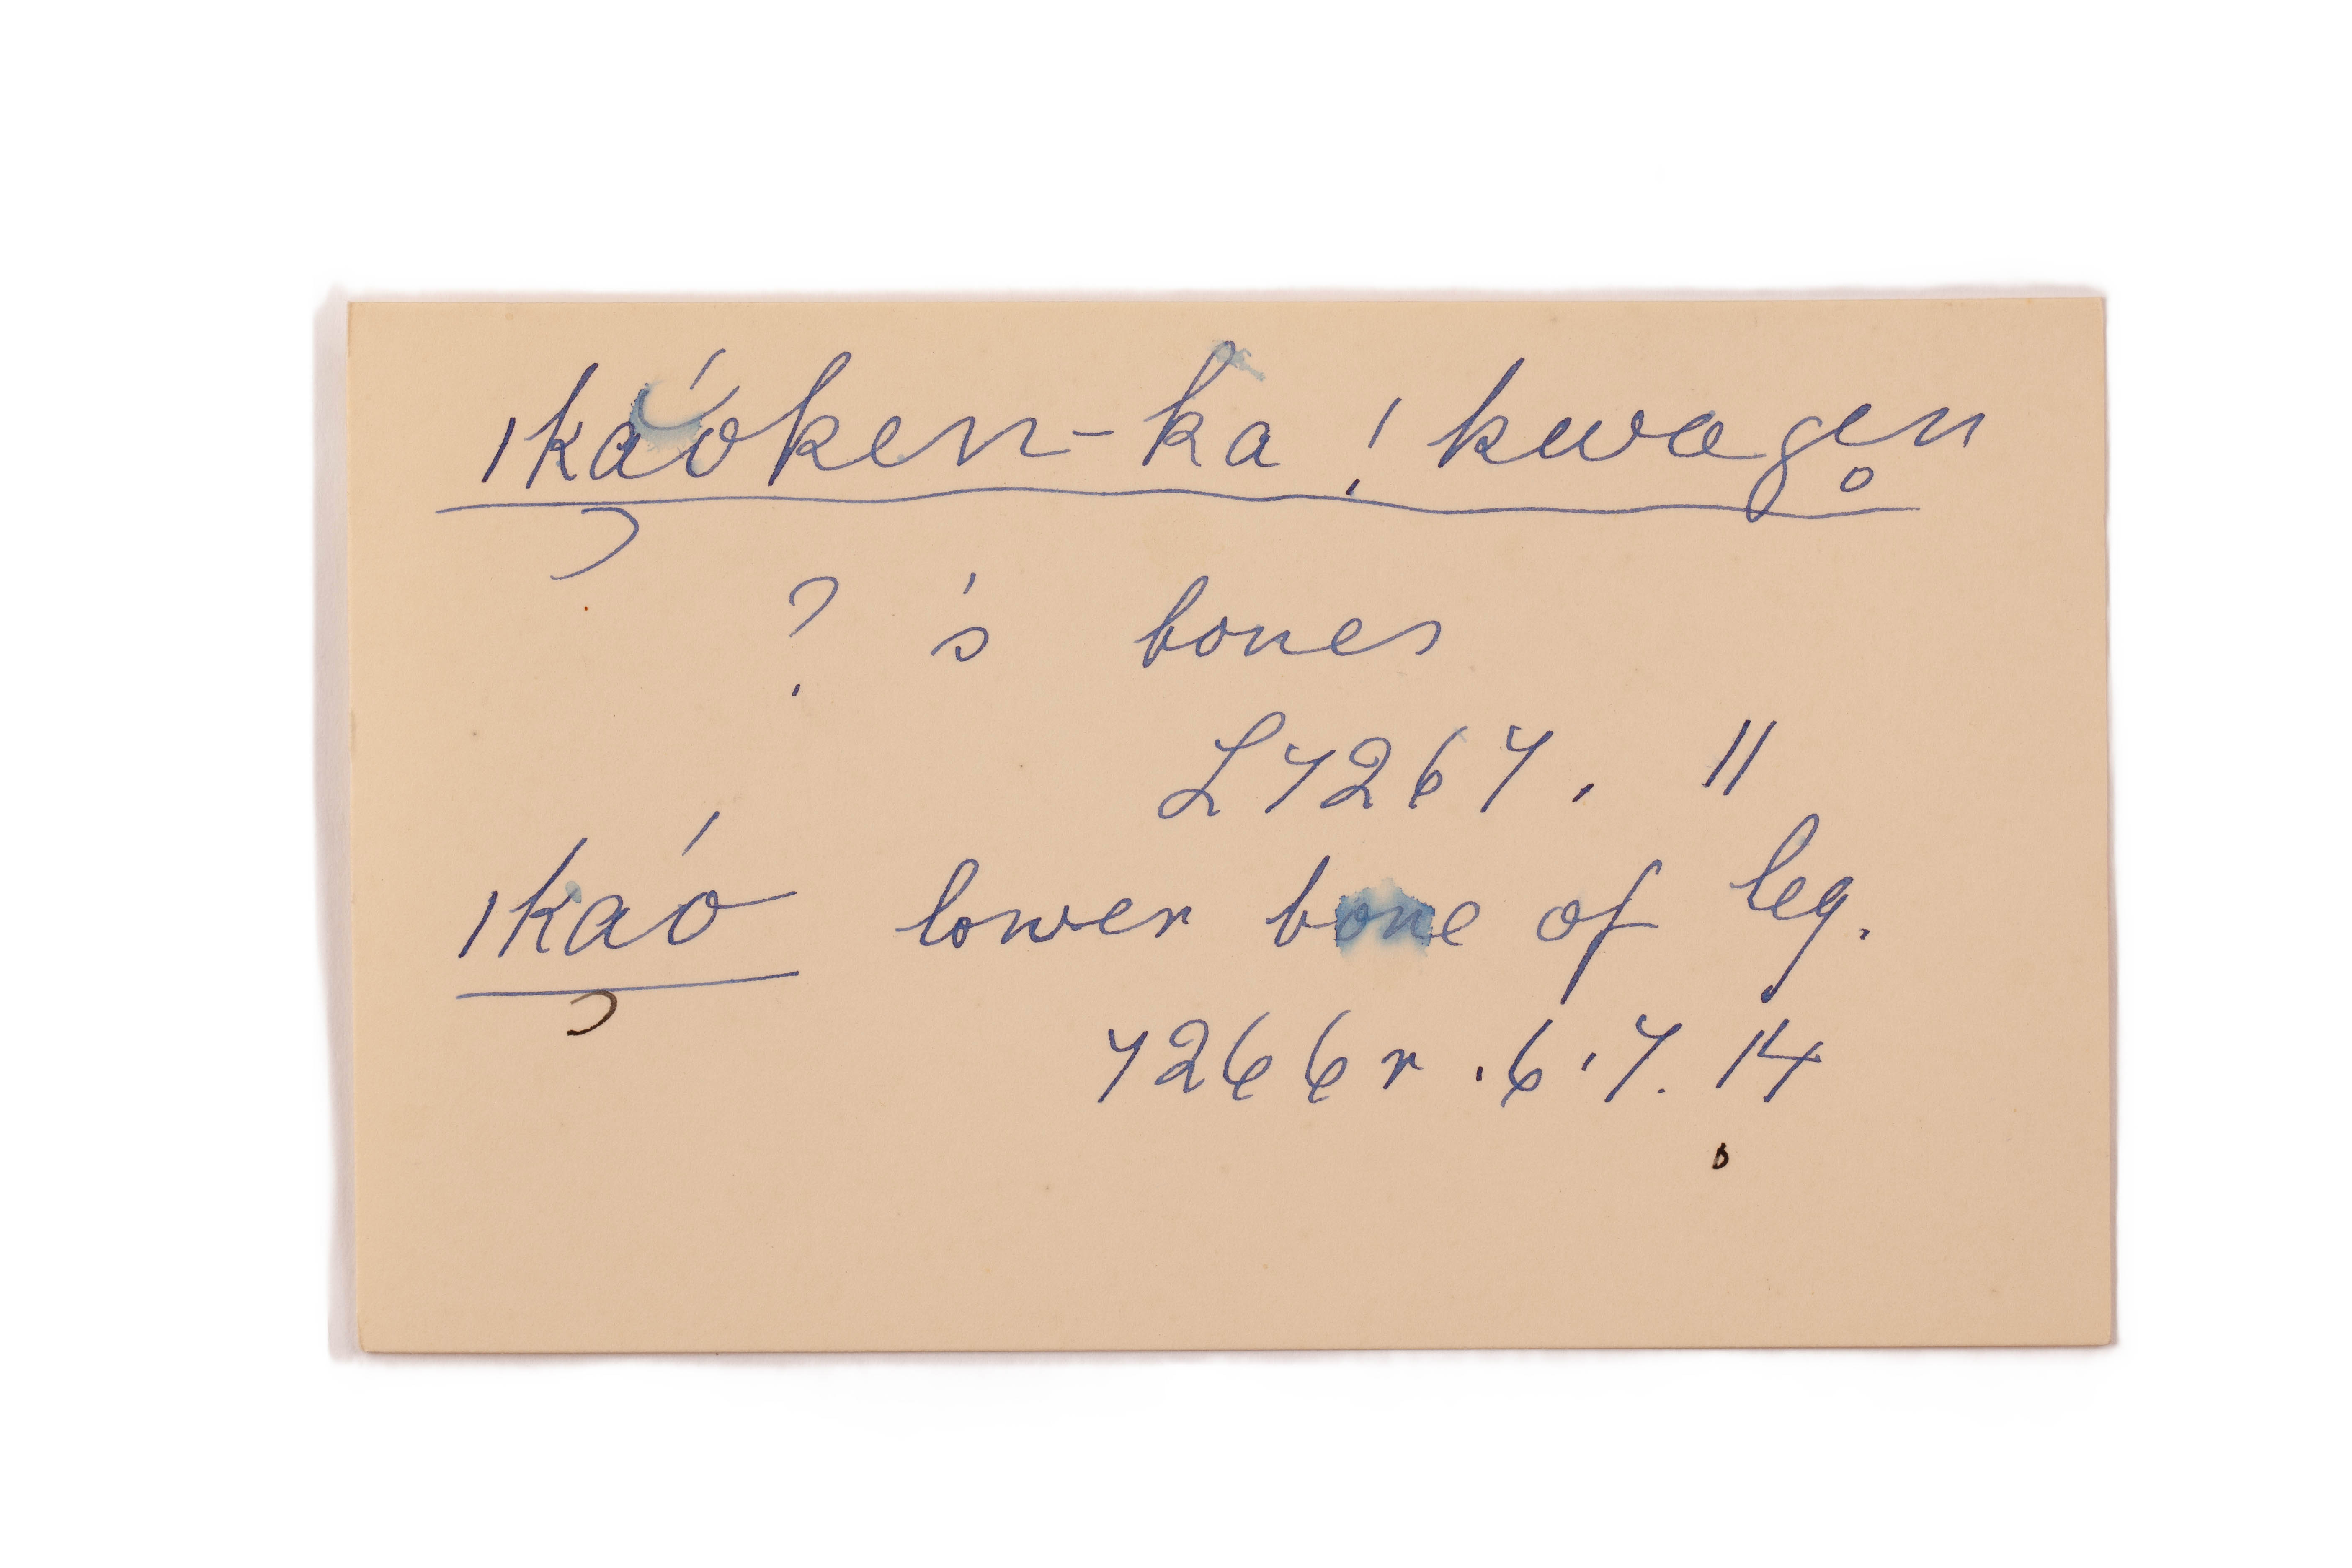 ǀkaóken-ka ǃkwagen
? 's bones
L7267. 11
ǀkaó lower bone of leg.
7266r.6.7.14